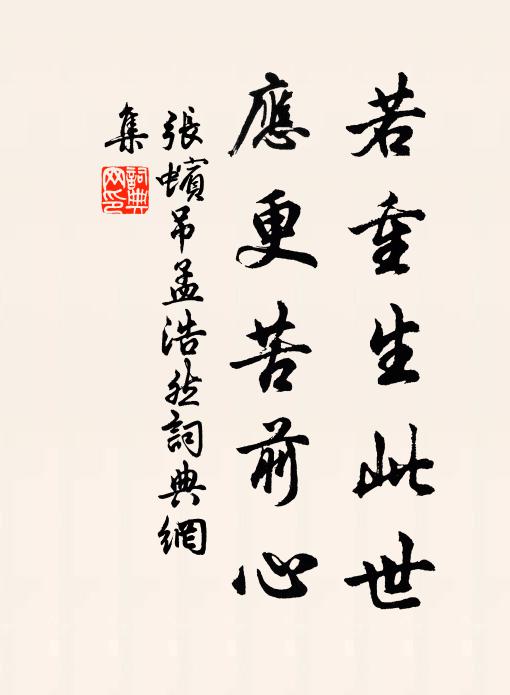 若重生此世
應更苦前心
張蠙吊孟浩然詞典網
集
詞典
網印